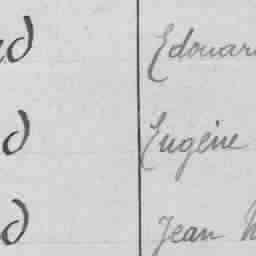 d Edouar
d Eugène
d Jean